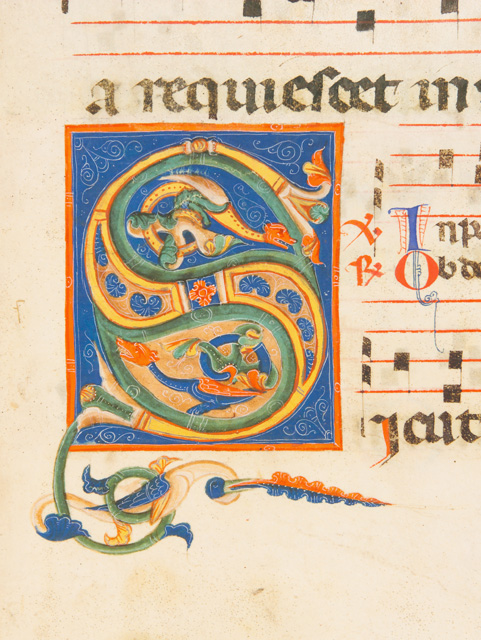 a requiescet in
S
℣. In p
℟. Ob d
icut